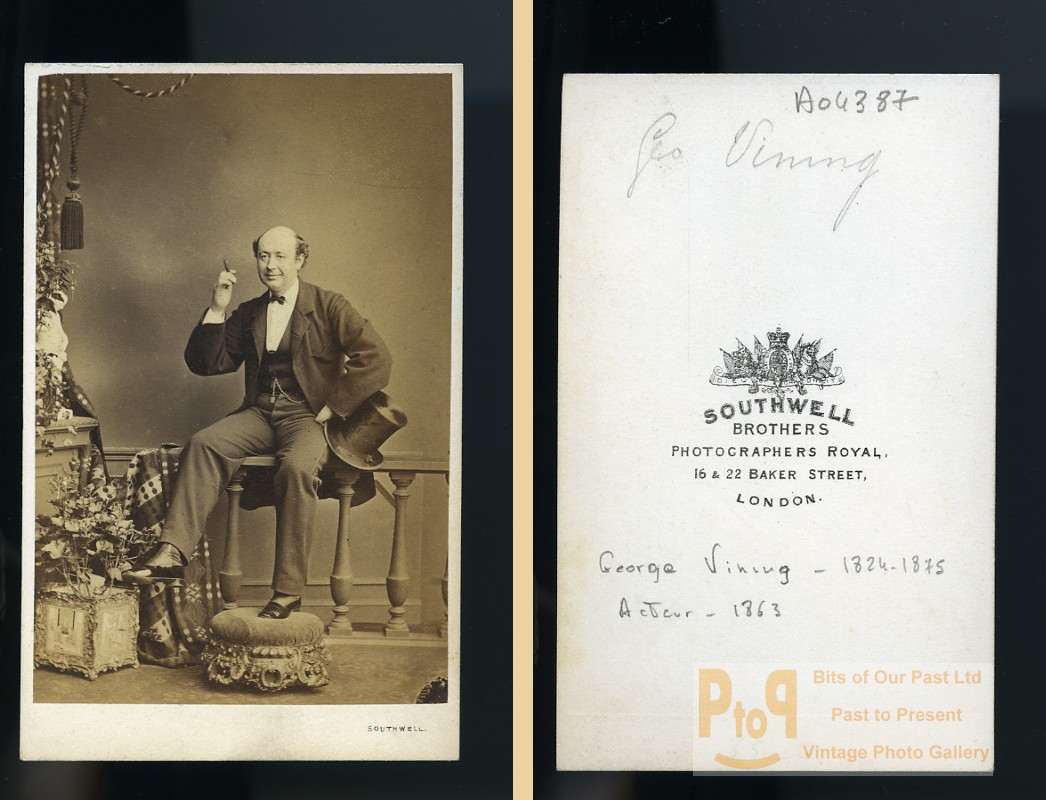 SOUTHWELL.
A04387
Geo Vining
SOUTHWELL
BROTHERS
PHOTOGRAPHERS ROYAL,
16 & 22 BAKER STREET,
LONDON.
George Vining - 1824-1875
Acteur - 1863
PtoP
Bits of Our Past Ltd
Past to Present
Vintage Photo Gallery